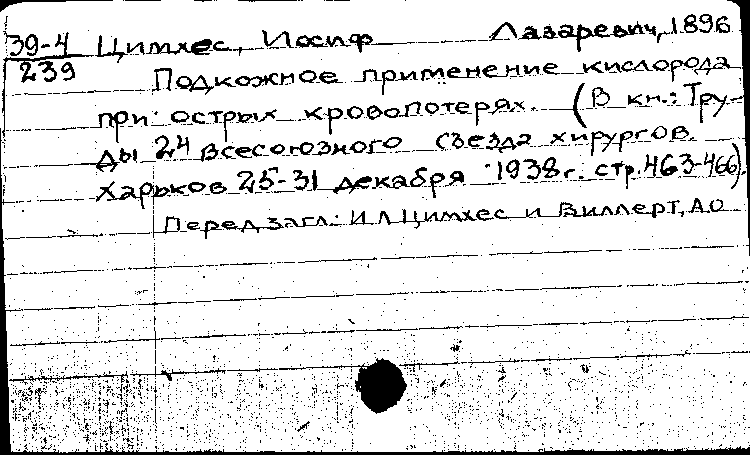 39-4 Цимхес, Иосиф Лазаревич, 1896
239
Подкожное применение кислорода
при острых кровопотерях. (В кн.: Тру-
ды 24 Всесоюзного съезда хирургов.
Харьков 25-31 декабря 1938 г. стр. 463-466).
Перед загл.: И Л Цимхес и Виллерт, А О